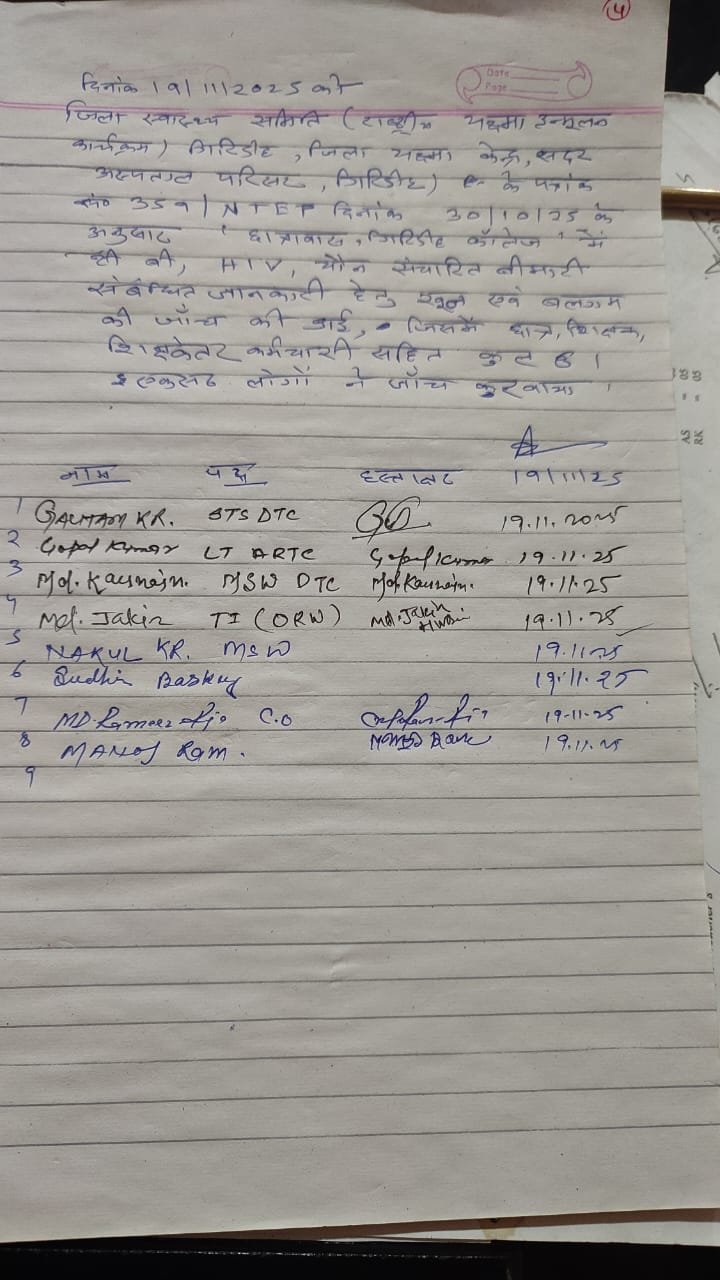 4
दिनांक 19/11/2025 को
Date
Page
जिला स्वास्थ्य समिति (राष्ट्रीय यक्ष्मा उन्मूलन
कार्यक्रम) गिरिडीह, जिला यक्ष्मा केन्द्र, सदर
अस्पताल परिसर, गिरिडीह) के पत्रांक
सं० 359/NTEP दिनांक 30/10/25 के
अनुसार 'छात्रावास, गिरिडीह कॉलेज' में
टी बी, HIV, यौन संचारित बीमारी
संबंधित जानकारी हेतु खून एवं बलगम
की जाँच की गई, जिसमें छात्र, शिक्षक,
शिक्षकेतर कर्मचारी सहित कुल 61
इकसठ लोगों ने जाँच करवाया ।
नाम पद हस्ताक्षर 19/11/25
1 GAUTAM KR. STS DTC 19.11.2025
2 Gopal Kumar LT ARTC Gopal Kumar 19.11.25
3 Md. Kausnain. MSW DTC Md. Kausnain. 19.11.25
4 Md. Jakir TI (ORW) Md. Jakir 19.11.25
5 NAKUL KR. MSW 19.11.25
6 Sudhir Baskey 19.11.25
7 MD. C.O 19-11-25
8 MANOJ Ram. 19.11.25
9
AS = 05
RK = 05